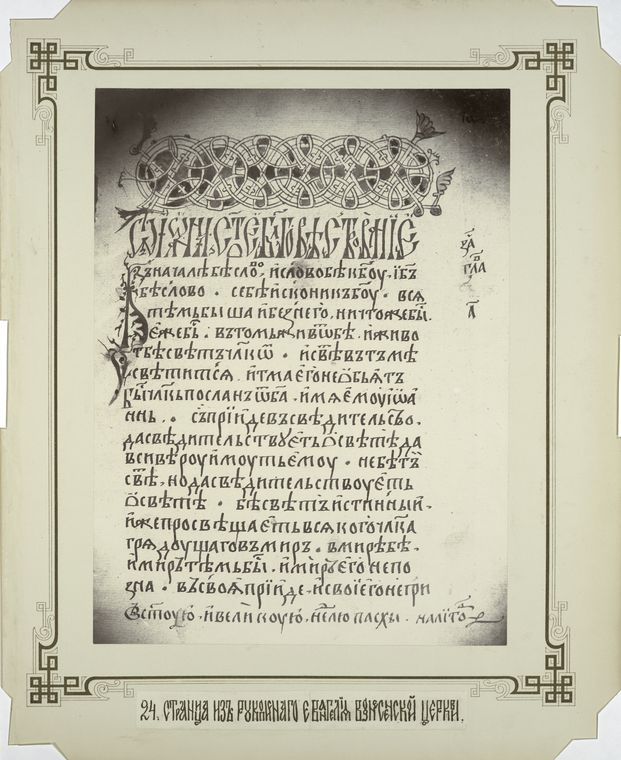 Въначалѣбѣсло, ислово бѣкбоу, ибъ
бѣслово · себѣисконикъбоу · вся
тѣмьбыша ибезнего, ничтожебы
ежебы · втомьживѡтбѣ, иживо
тбѣсвѣтъ члкѡ · исвѣвътьмѣ
свѣтится итмаегонеѡбьятъ
члкъпосланъ ѿба · имяемоуіѡа
ннь · съпріидевъсвѣдительсво ·
дасвѣдительствуеть ѡсвѣтѣда
всивѣроуимоутьемоу · небѣтъ
свѣ, нодасвѣдительствоуеть
ѡсвѣтѣ · бѣсвѣтъистинный ·
ижепросвѣщаетьвсякогочлка
грядоущаговъмиръ · вмирѣбѣ ·
имиръ тѣмьбы · имиръегонепо
зна · въсвояпріиде · исвоиегонепри
Встоую · ивеликоую · нлю пасхы · налито
зач
гла
а
24. СТРАНИЦА ИЗЪ РУКОПИСНАГО ЕВАНГЕЛІЯ ЦЕРКВИ.